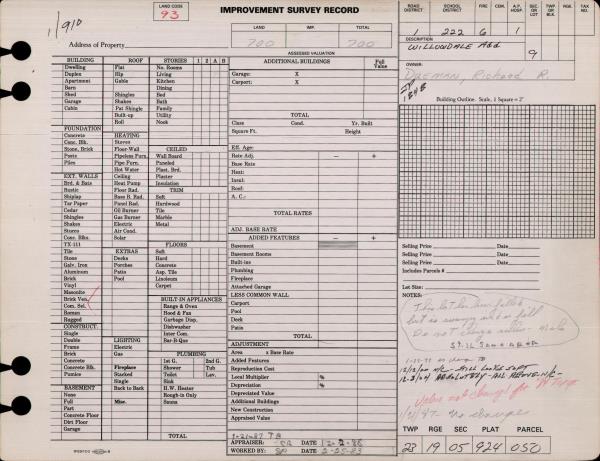 LAND CODE
93
IMPROVEMENT SURVEY RECORD
1/910
LAND IMP. TOTAL
700 700
Address of Property
ASSESSED VALUATION
ROAD DISTRICT SCHOOL DISTRICT FIRE CEM. A.P. HOSP. SEC. OR LOT TWP. OR BLK. RGE. TAX NO.
1 222 6 1
DESCRIPTION
WILLOWDALE Add 9
OWNER:
Dreman, Richard R.
BUILDING ROOFS STORIES 1 2 A B
ADDITIONAL BUILDINGS Full Value
Dwelling Flat No. Rooms
Duplex Hip Living
Apartment Gable Kitchen
Barn Dining
Shed Shingles Bed
Garage Shakes Bath
Cabin Pat Shingle Family
Built-up Utility
Roll Nook
Garage: X
Carport: X
TOTAL
Class Cond. Yr. Built
Square Ft. Height
Building Outline. Scale, 1 Square = 2'
FOUNDATION HEATING
Concrete Stoves
Conc. Blk. Floor-Wall CEILED
Stone, Brick Pipeless Furn. Wall Board
Posts Pipe Furn. Paneled
Piles Hot Water Plast. Brd.
Ceiling Plaster
EXT. WALLS Heat Pump Insulation
Brd. & Bats Floor Rad. TRIM
Rustic Base B. Rad. Soft
Shiplap Panel Rad. Hardwood
Tar Paper Oil Burner Tile
Cedar Gas Burner Marble
Shingles Electric Metal
Shakes Air Cond.
Stucco Solar
Conc. Blks.
TX-111 FLOORS
Tile EXTRAS Soft
Stone Decks Hard
Galv. Iron Porches Concrete
Aluminum Patio Asp. Tile
Brick Pool Linoleum
Vinyl Carpet
Masonite
Brick Ven. BUILT-IN APPLIANCES
Com. Sel. Range & Oven
Roman Hood & Fan
Rugged Garbage Disp.
CONSTRUCT. Dishwasher
Single Inter Com.
Double LIGHTING Bar-B-Que
Frame Electric
Brick Gas PLUMBING
Concrete 1st G. 2nd G.
Concrete Blk. Fireplace Shower Tub
Pumice Stacked Toilet Lav.
Single Sink
BASEMENT Back to Back H.W. Heater
None Rough-in Only
Full Misc. Sauna
Part
Concrete Floor
Dirt Floor
Garage TOTAL
Eff. Age:
Rate Adj. — +
Base Rate
Heat:
Insul:
Roof:
A. C.:
TOTAL RATES
ADJ. BASE RATE
ADDED FEATURES — +
Basement
Basement Rooms
Built-ins
Plumbing
Fireplace
Attached Garage
LESS COMMON WALL
Carport
Pool
Deck
TOTAL
ADJUSTMENT
Area x Base Rate
Added Features
Reproduction Cost
Local Multiplier %
Depreciation %
Depreciated Value
Additional Buildings
New Construction
Appraised Value
1-21-87 TB
APPRAISER: DATE 12-2-86
WORKED BY: SP DATE 2-25-83
Selling Price Date
Selling Price Date
Selling Price Date
Includes Parcels #
Lot Size:
NOTES:
Do not change value.
12-3-04
Value not change for
1/21/87 no change
TWP RGE SEC PLAT PARCEL
23 19 05 924 050